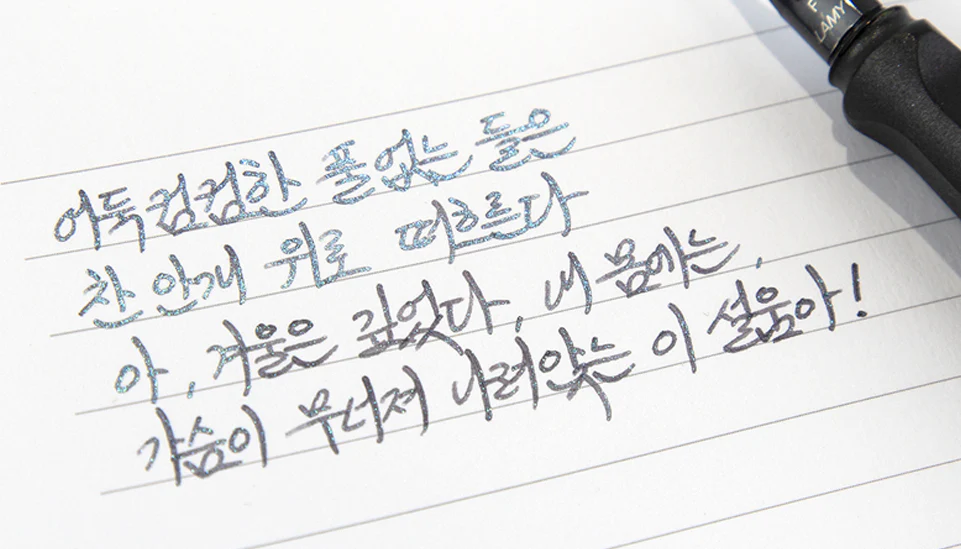 F
LAMY
어둑컴컴한 풀없는 들은
찬 안개 위로 떠흐른다
아, 겨울은 깊었다, 내 몸에는,
가슴이 무너져 나려앉는 이 설움아!